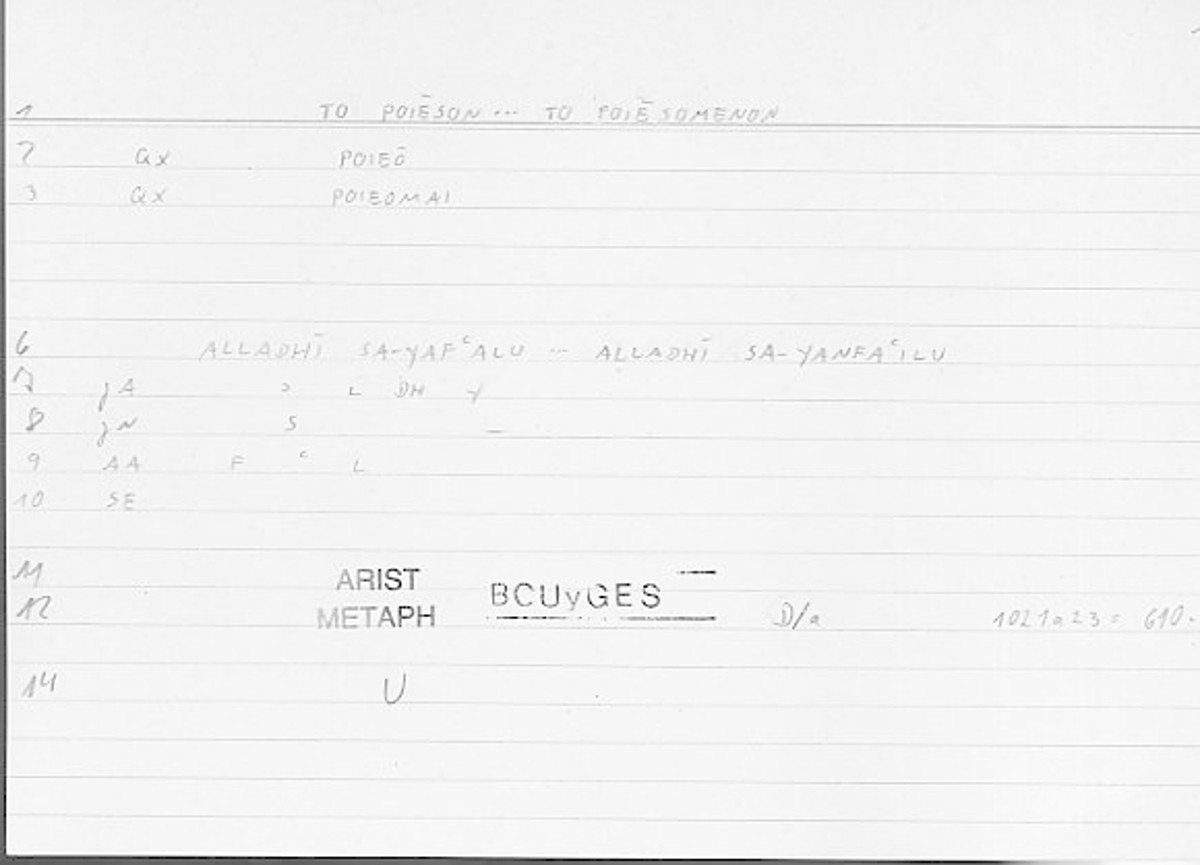 1 TO POIĒSON ... TO POIĒSOMENON
2 QX POIEŌ
3 QX POIEOMAI
6 ALLADHĪ SA-YAFʿALU ... ALLADHĪ SA-YANFAʿILU
7 JA ʾ L DH Y
8 JN S —
9 AA F ʿ L
10 SE
11 ARIST
12 METAPH BCUyGES D/a 1021a23 = 610.
14 U